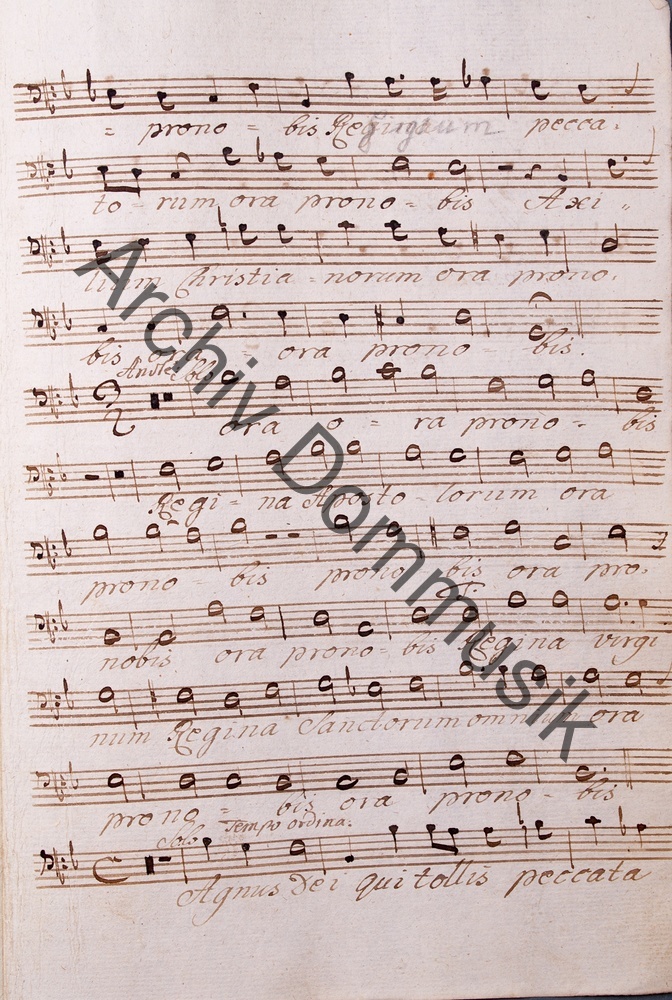 = prono = bis Re pecca.
to - rum ora prono = bis Axi „
lium Christia = norum ora prono.
bis ora = ora prono = bis.
Solo
ora o = ra prono = bis
Regi = na Aposto - lorum ora
prono = bis prono bis ora pro.
T.
nobis ora prono = bis Regina virgi
num Regina Sanctorum omnium ora
prono = bis ora prono = bis
Solo Tempo ordina:
Agnus Dei qui tollis peccata
Archiv Dommusik